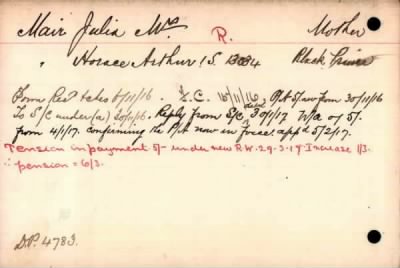 Mair Julia Mrs R. Mother
" Horace Arthur (S. 13084 Black Prince
Form Red taken 8/11/16. L.C. 16/11/16 P/A 5/- wr from 30/11/16
To S/C under (a) 20/1/16. Reply from S/C dated 30/1/17 W/a of 5/-
from 4/1/17. confirming the P/A now in force. appd 5/2/17.
Pension in payment 5/- under new R.W. 29.3.17 Increase 1/3.
∴ pension = 6/3.
D.P. 4783.